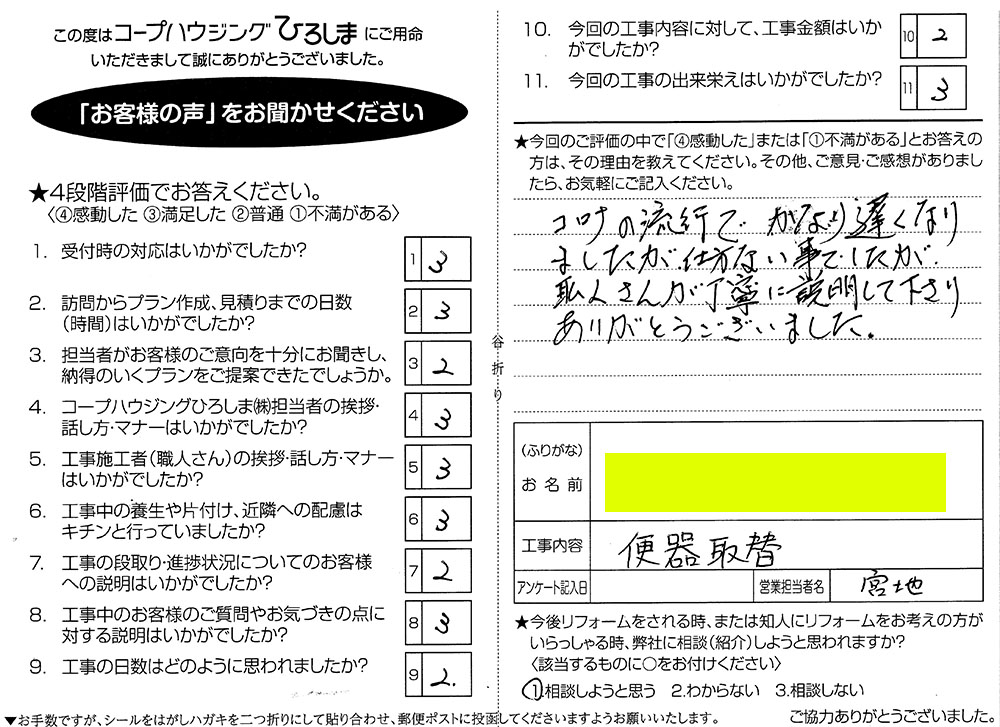 この度はコープハウジングひろしまにご用命
いただきまして誠にありがとうございました。
「お客様の声」をお聞かせください
★4段階評価でお答えください。
〈④感動した ③満足した ②普通 ①不満がある〉
1. 受付時の対応はいかがでしたか?
1 3
2. 訪問からプラン作成、見積りまでの日数
(時間)はいかがでしたか?
2 3
3. 担当者がお客様のご意向を十分にお聞きし、
納得のいくプランをご提案できたでしょうか。
3 2
4. コープハウジングひろしま㈱担当者の挨拶・
話し方・マナーはいかがでしたか?
4 3
5. 工事施工者(職人さん)の挨拶・話し方・マナー
はいかがでしたか?
5 3
6. 工事中の養生や片付け、近隣への配慮は
キチンと行っていましたか?
6 3
7. 工事の段取り・進捗状況についてのお客様
への説明はいかがでしたか?
7 2
8. 工事中のお客様のご質問やお気づきの点に
対する説明はいかがでしたか?
8 3
9. 工事の日数はどのように思われましたか?
9 2.
谷折り
10. 今回の工事内容に対して、工事金額はいか
がでしたか?
10 2
11. 今回の工事の出来栄えはいかがでしたか?
11 3
★今回のご評価の中で「④感動した」または「①不満がある」とお答えの
方は、その理由を教えてください。その他、ご意見・ご感想がありまし
たら、お気軽にご記入ください。
コロナの流行で かなり遅くなり
ましたが、仕方ない事でしたが、
職人さんが丁寧に説明して下さり
ありがとうございました。
(ふりがな)
お名前
工事内容 便器取替
アンケート記入日 営業担当者名 宮地
★今後リフォームをされる時、または知人にリフォームをお考えの方が
いらっしゃる時、弊社に相談(紹介)しようと思われますか?
〈該当するものに○をお付けください〉
①.相談しようと思う 2.わからない 3.相談しない
▼お手数ですが、シールをはがしハガキを二つ折りにして貼り合わせ、郵便ポストに投函してくださいますようお願いいたします。
ご協力ありがとうございました。